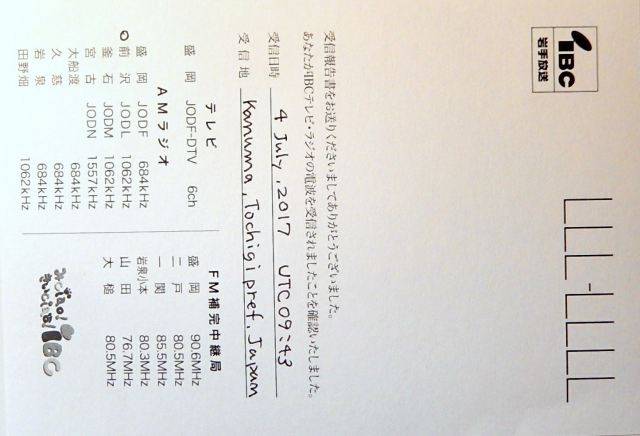 IBC
岩手放送
受信報告書をお送りくださいましてありがとうございました。
あなたがIBCテレビ・ラジオの電波を受信されましたことを確認いたしました。
受信日時 4 July, 2017 UTC 09:43
受信地 Kanuma, Tochigi pref. Japan
テレビ
盛岡 JODF-DTV 6ch
AMラジオ
盛岡 JODF 684kHz
前沢 JODL 1062kHz
釜石 JODM 1062kHz
宮古 JODN 1557kHz
大船渡 684kHz
久慈 684kHz
岩泉 684kHz
田野畑 1062kHz
FM補完中継局
盛岡 90.6MHz
二戸 80.5MHz
一関 85.5MHz
岩泉小本 80.3MHz
山田 76.7MHz
大槌 80.5MHz
IBC